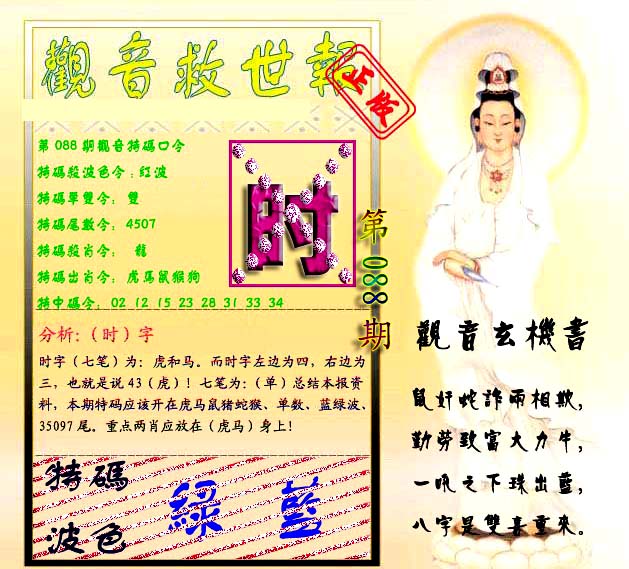 觀音救世報
正版
第 088 期觀音特碼口令
特碼殺波色令:紅波
特碼單雙令: 雙
特碼尾數令: 4507
特碼殺肖令: 龍
特碼出肖令: 虎馬鼠猴狗
特中碼令: 02 12 15 23 28 31 33 34
时
第 088 期
分析:(时)字
时字（七笔）为：虎和马。而时字左边为四，右边为
三，也就是说 43（虎）！七笔为:（单）总结本报资
料，本期特码应该开在虎马鼠猪蛇猴、单数、蓝绿波、
35097 尾。重点两肖应放在（虎马）身上!
特碼
波色
綠 藍
觀音玄機書
鼠奸蛇詐兩相欺,
勤勞致富大力牛,
一吼之下珠出藍,
八字是雙喜重來。